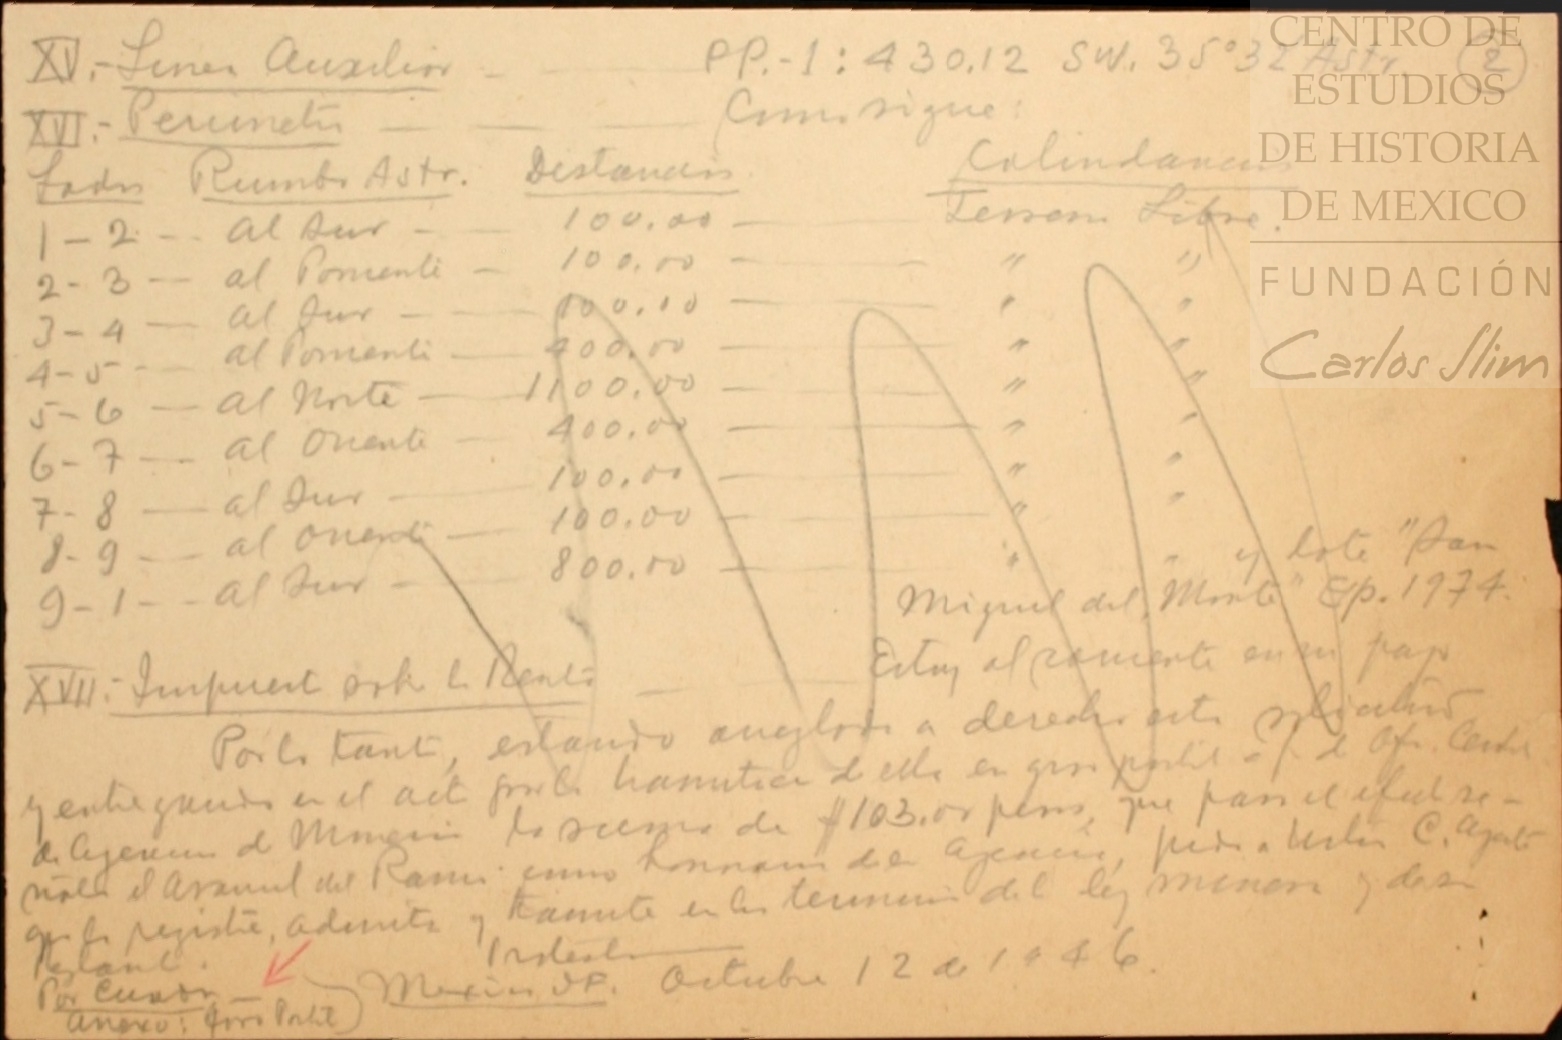 XV.- Linea Auxiliar - PP.-1: 430.12 SW. 35°32 Astr. 2
XVI.- Perimetro - Como sigue:
Lados Rumbo Astr. Distancias Colindancias
1-2 -- al Sur - 100.00 - Terreno Libre.
2-3 -- al Poniente - 100.00 - " "
3-4 - al Sur - 100.00 - " "
4-5 - al Poniente - 400.00 - " "
5-6 - al Norte - 1100.00 - " "
6-7 - al Oriente - 400.00 - " "
7-8 - al Sur - 100.00 - " "
8-9 - al Oriente - 100.00 - " "
9-1 - al Sur - 800.00 - " " y lote "San
Miguel del Monte" Exp. 1974.
XVII.- Impuesto sobre la Renta - Estoy al corriente en mi pago
Por lo tanto, estando arreglada a derecho esta solicitud
y entregando en el acto para la tramitacion de ella en giro postal Ofi. Central
de Agencias de Mineria la suma de $103.00 pesos, que para el efecto se-
ñala el Arancel del Ramo como honorarios de Agencia, pido a Usted C. Agente
que la registre, admita y tramite en los terminos del ley minera y de su
Reglamento.
Protesto
Por Cuadr. Mexico D.F. Octubre 12 de 1946.
Anexo: Giro Postal
CENTRO DE
ESTUDIOS
DE HISTORIA
DE MEXICO
FUNDACIÓN
Carlos Slim